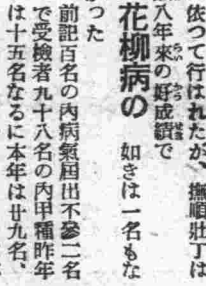 依つて行はれたが、撫順壯丁は
八年來の好成績で
花柳病の
如きは一名もな
かつた
前記百名の內病氣屆出不參二名
で受檢者九十八名の內甲種昨年
は十五名なるに本年は廿九名、